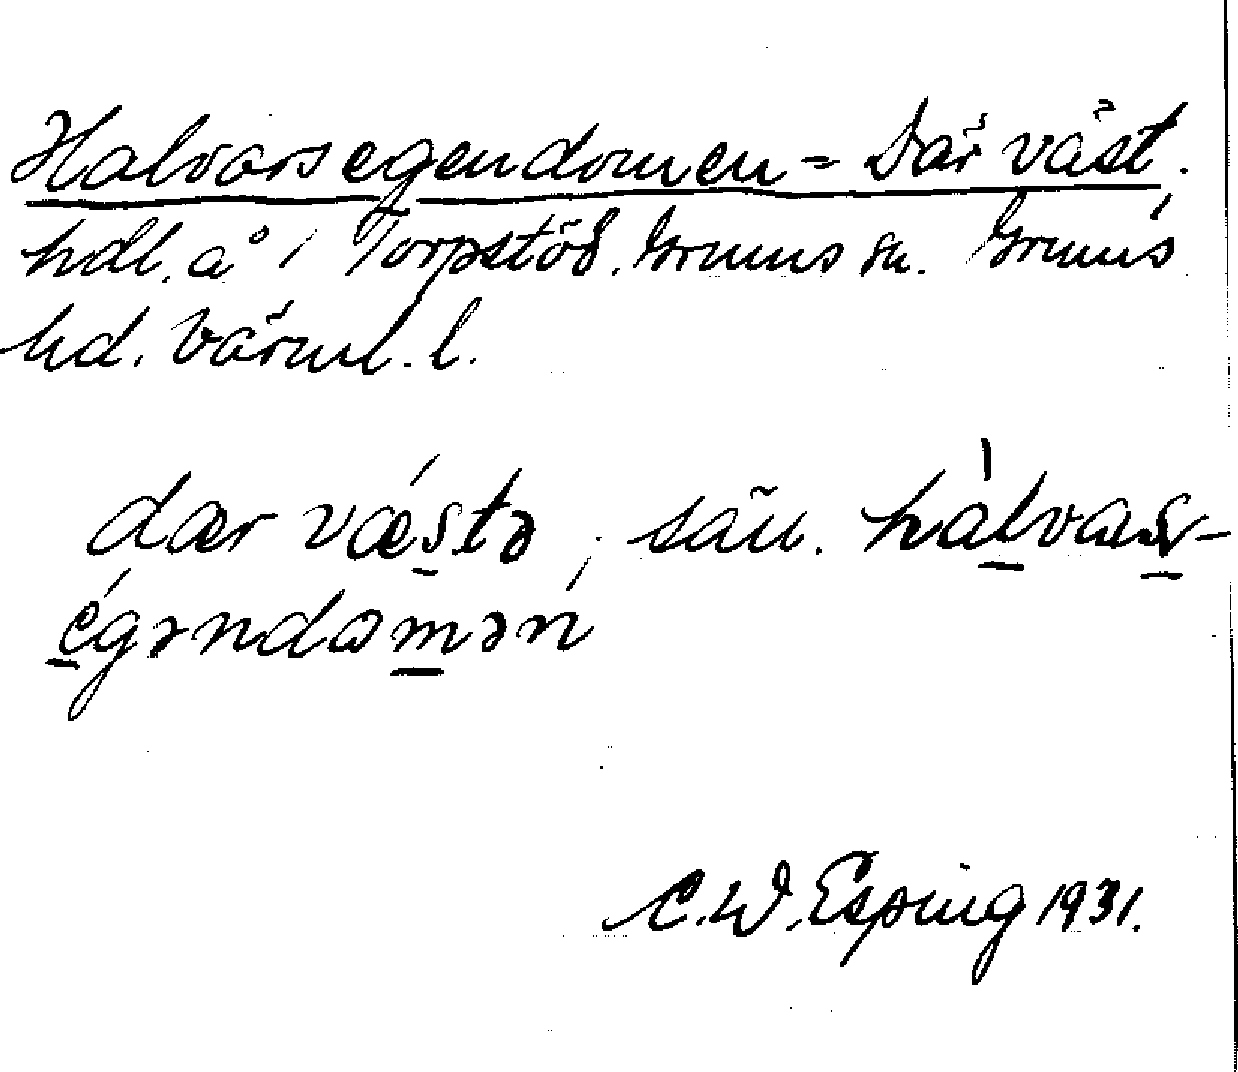 Halvorsegendomen = Där väst,
hdl. å i Torpstöd. Grums sn. Grums
hd. Värml. l.
dær vǽstə, sän. hàlvas-
égəndomən
C. W. Esping 1931.